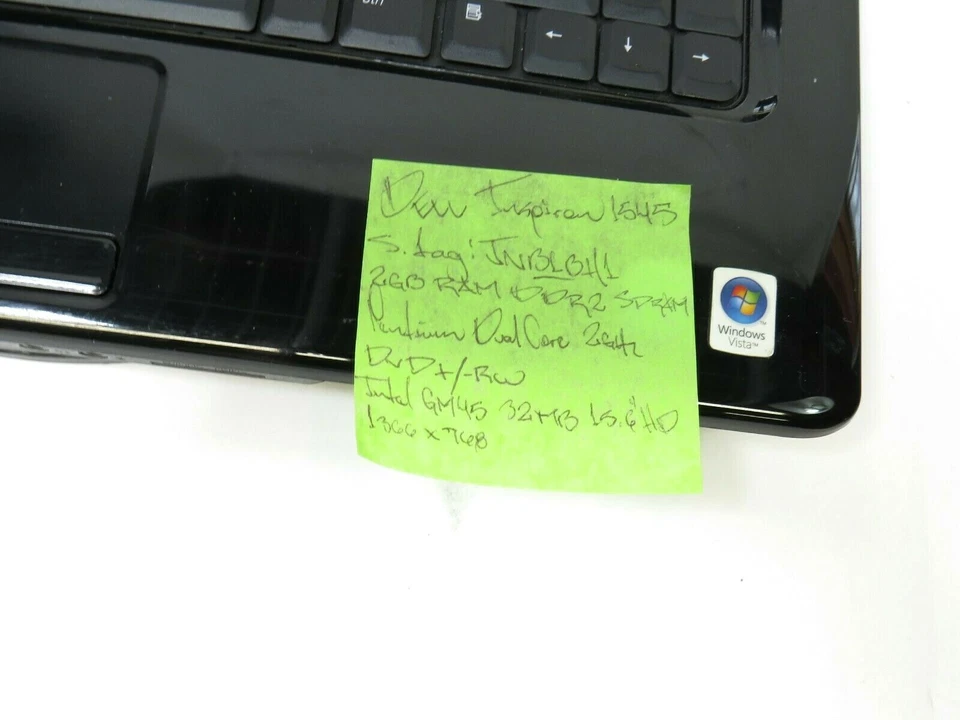 Ctrl
←
↓
→
Dell Inspiron 1545
S.tag: JNB1BH1
2GB RAM DDR2 SDRAM
Pentium Dual Core 2GHz
DVD+/-RW
Intel GM45 32MB 15.6" HD
1366 x 768
Windows
Vista™